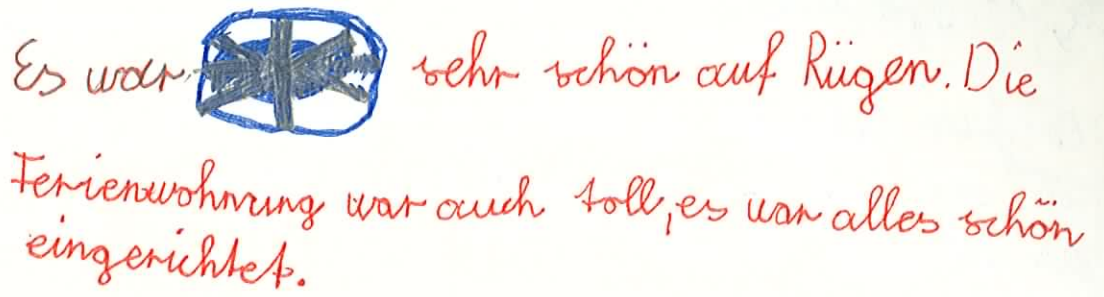 Es war sehr schön auf Rügen. Die
Ferienwohnung war auch toll, es war alles schön
eingerichtet.